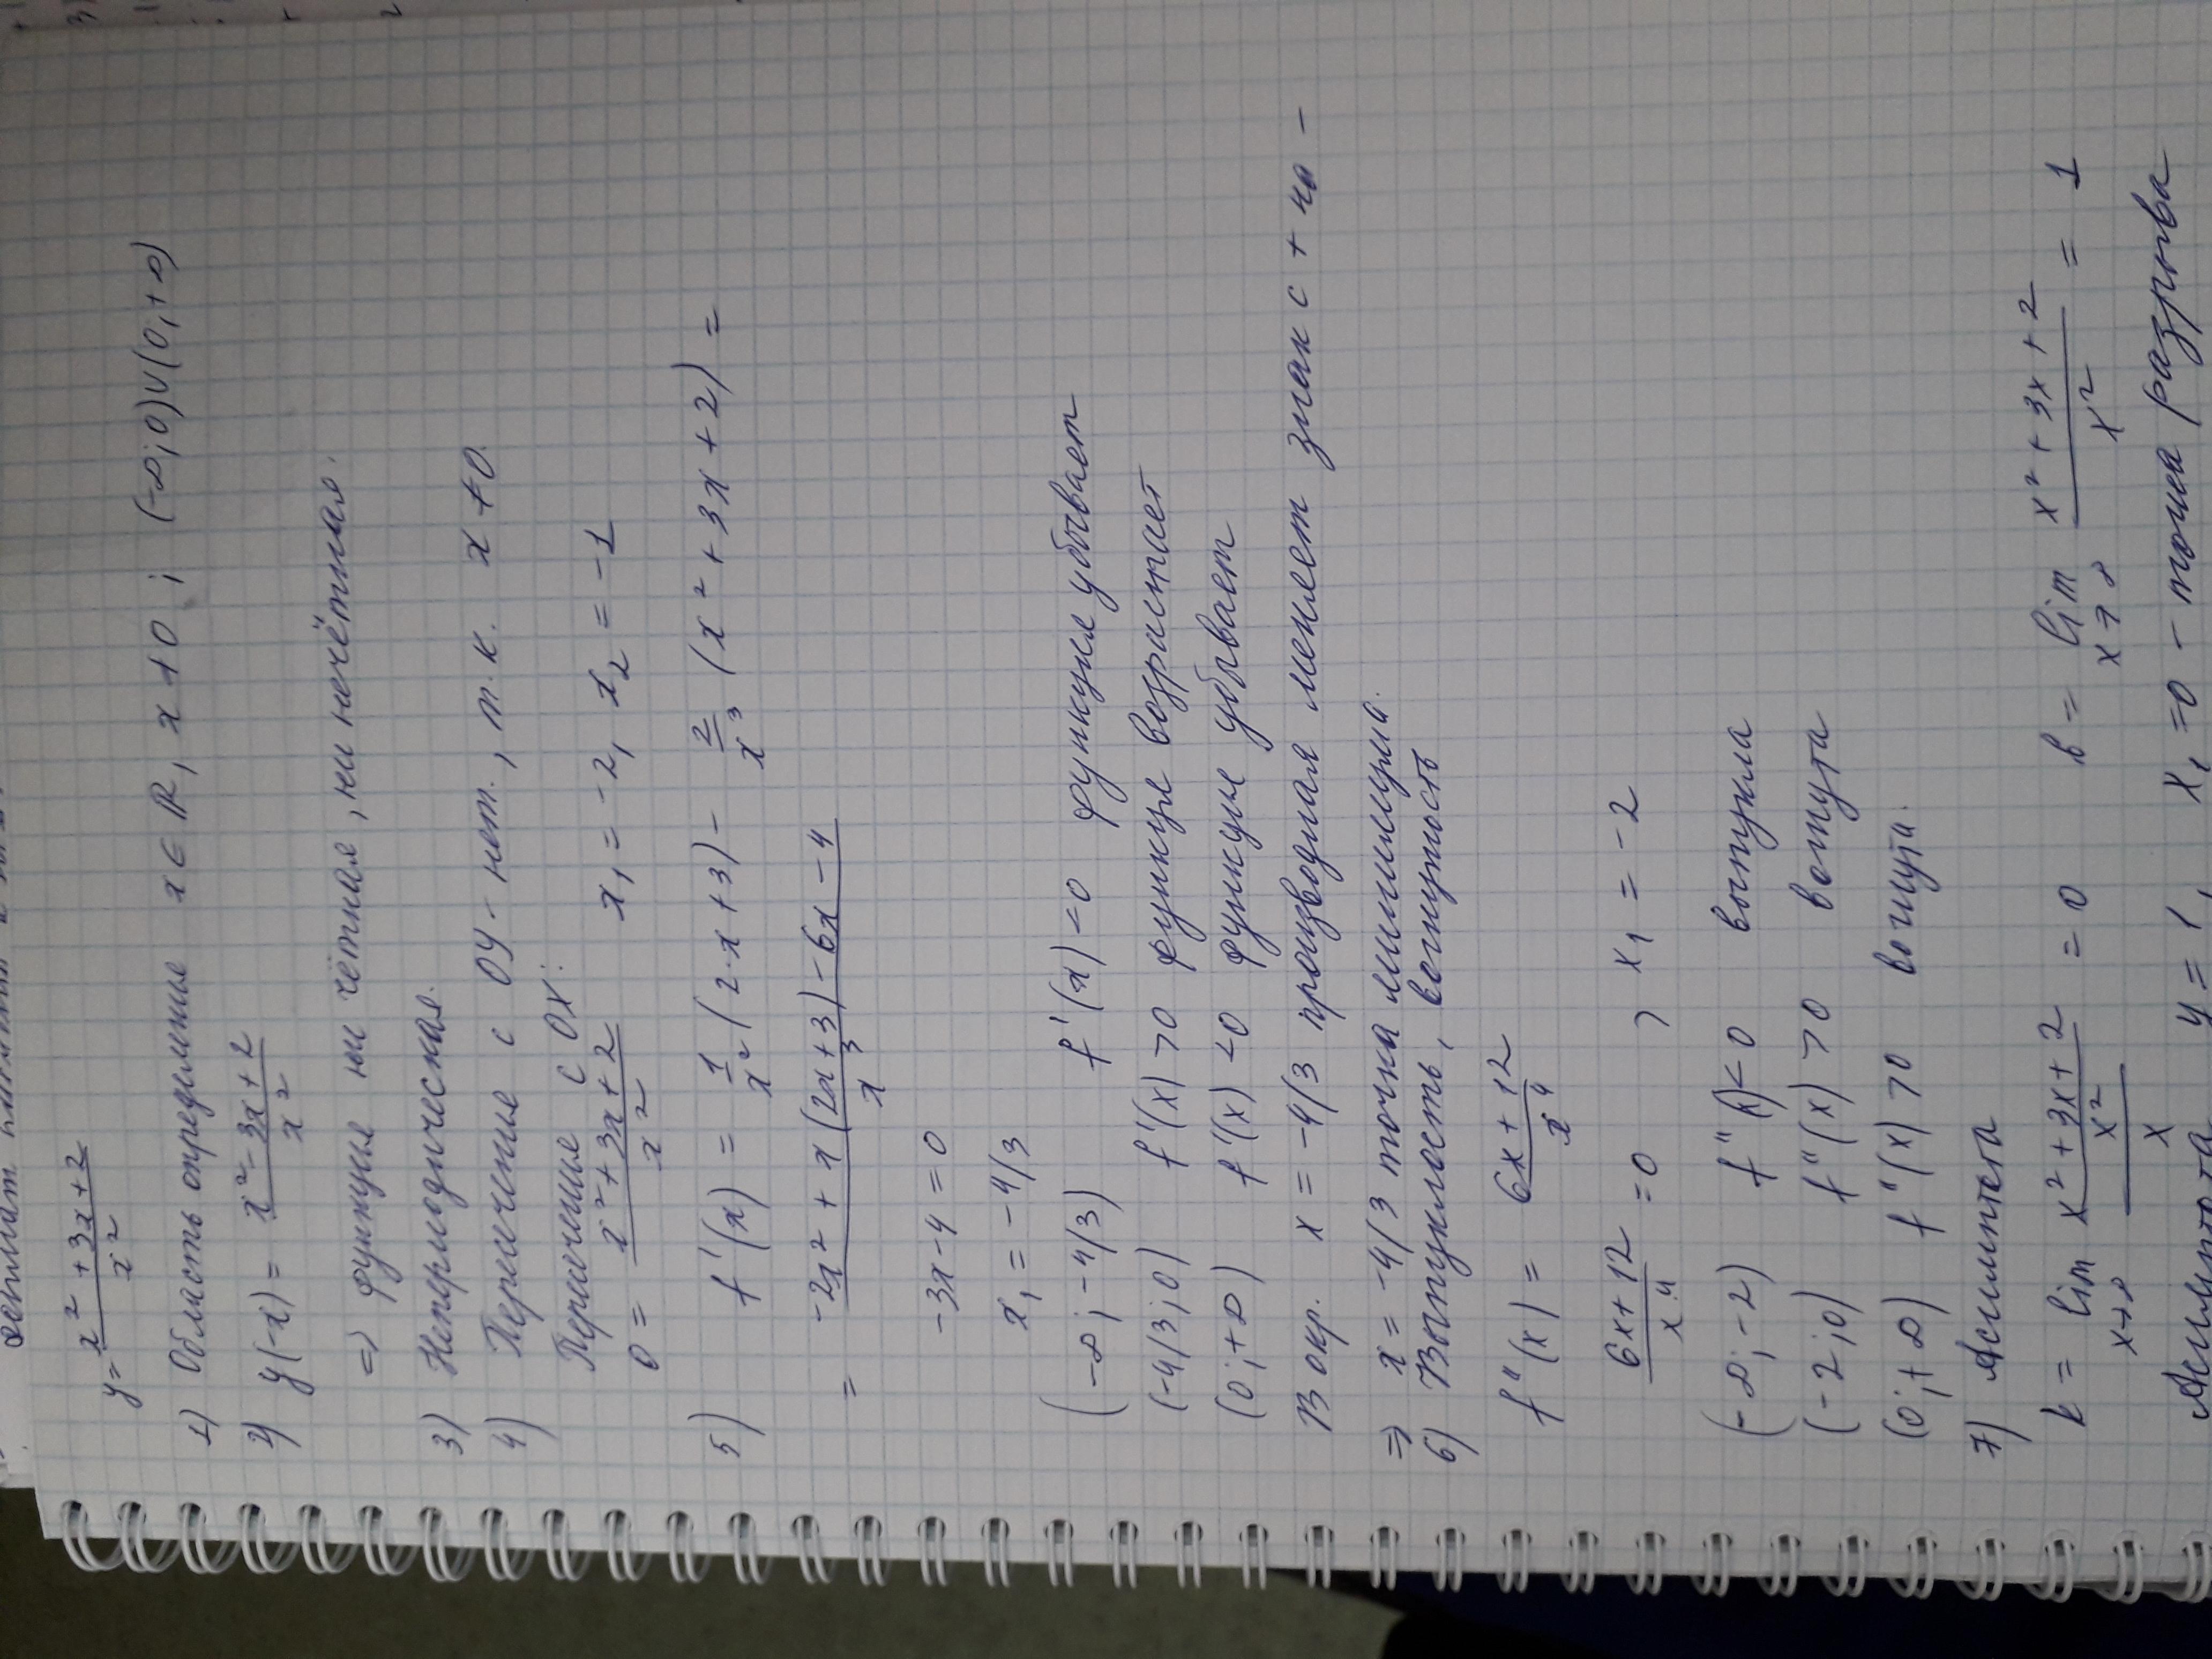 y = (x² + 3x + 2)/x²
1) Область определения x ∈ ℝ, x ≠ 0 ; (-∞; 0) ∪ (0; +∞)
2) y(-x) = (x² - 3x + 2)/x²
⇒ функция ни чётная, ни нечётная.
3) Непериодическая.
4) Пересечение с ОУ - нет., т.к. x ≠ 0.
Пересечение с ОХ:
0 = (x² + 3x + 2)/x² x₁ = -2, x₂ = -1
5) f'(x) = 1/x² (2·x + 3) - 2/x³ (x² + 3x + 2) =
= (-2x² + x(2x + 3) - 6x - 4)/x³
-3x - 4 = 0
x₁ = -4/3
(-∞; -4/3) f'(x) < 0 функция убывает
(-4/3; 0) f'(x) > 0 функция возрастает
(0; +∞) f'(x) < 0 функция убывает
В окр. x = -4/3 производная меняет знак с + на -
⇒ x = -4/3 точка минимума.
6) Выпуклость, вогнутость
f''(x) = (6x + 12)/x⁴
(6x + 12)/x⁴ = 0 , x₁ = -2
(-∞; -2) f''(x) < 0 выпукла
(-2; 0) f''(x) > 0 вогнута
(0; +∞) f''(x) > 0 вогнута.
7) Асимптота
k = lim x→∞ ((x² + 3x + 2)/x²)/x = 0 b = lim x→∞ (x² + 3x + 2)/x² = 1
Асимптота y = 1, x₁ = 0 - точка разрыва